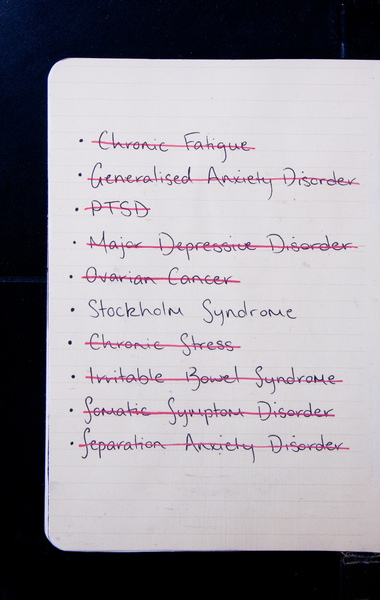 • Chronic Fatigue
• Generalised Anxiety Disorder
• PTSD
• Major Depressive Disorder
• Ovarian Cancer
• Stockholm Syndrome
• Chronic Stress
• Irritable Bowel Syndrome
• Somatic Symptom Disorder
• Separation Anxiety Disorder